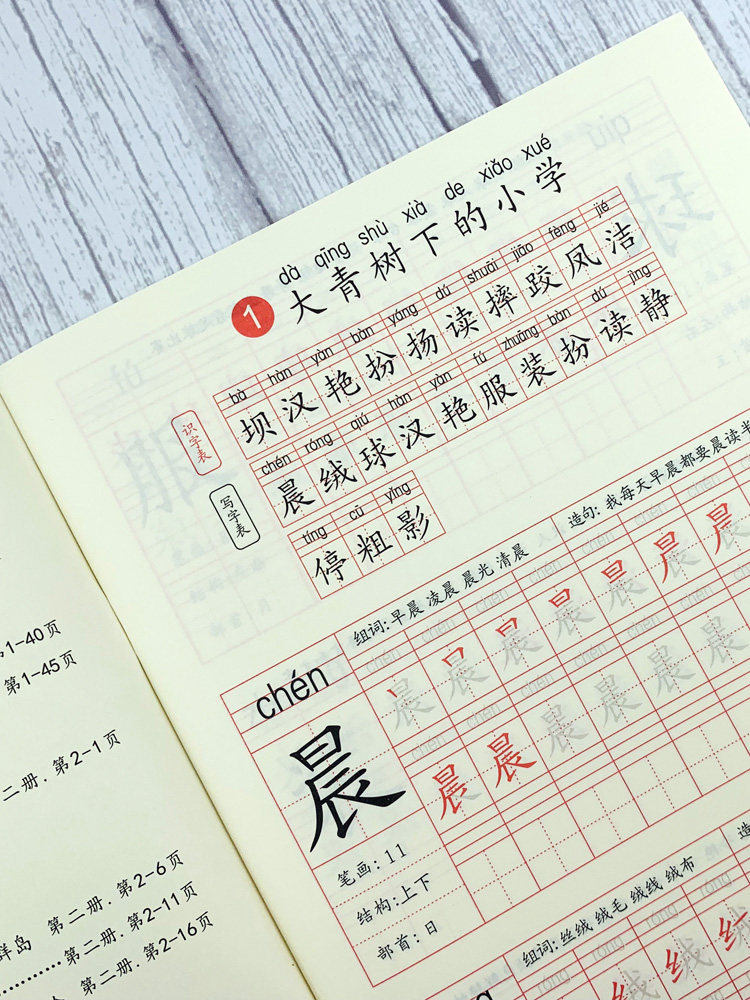 dà qīng shù xià de xiǎo xué
1 大青树下的小学
bà hàn yàn bàn yáng dú shuāi jiāo fèng jié
识字表 坝汉艳扮扬读摔跤凤洁
chén róng qiú hàn yàn fú zhuāng bàn dú jìng
写字表 晨绒球汉艳服装扮读静
tíng cū yǐng
停粗影
组词:早晨 凌晨 晨光 清晨
造句:我每天早晨都要晨读半
chén
晨
笔画:11
结构:上下
部首:日
组词:丝绒 绒毛 绒线 绒布
造
róng
绒
第1-40页
第1-45页
二册.第2-1页
第二册.第2-6页
群岛 第二册.第2-11页
第二册.第2-16页